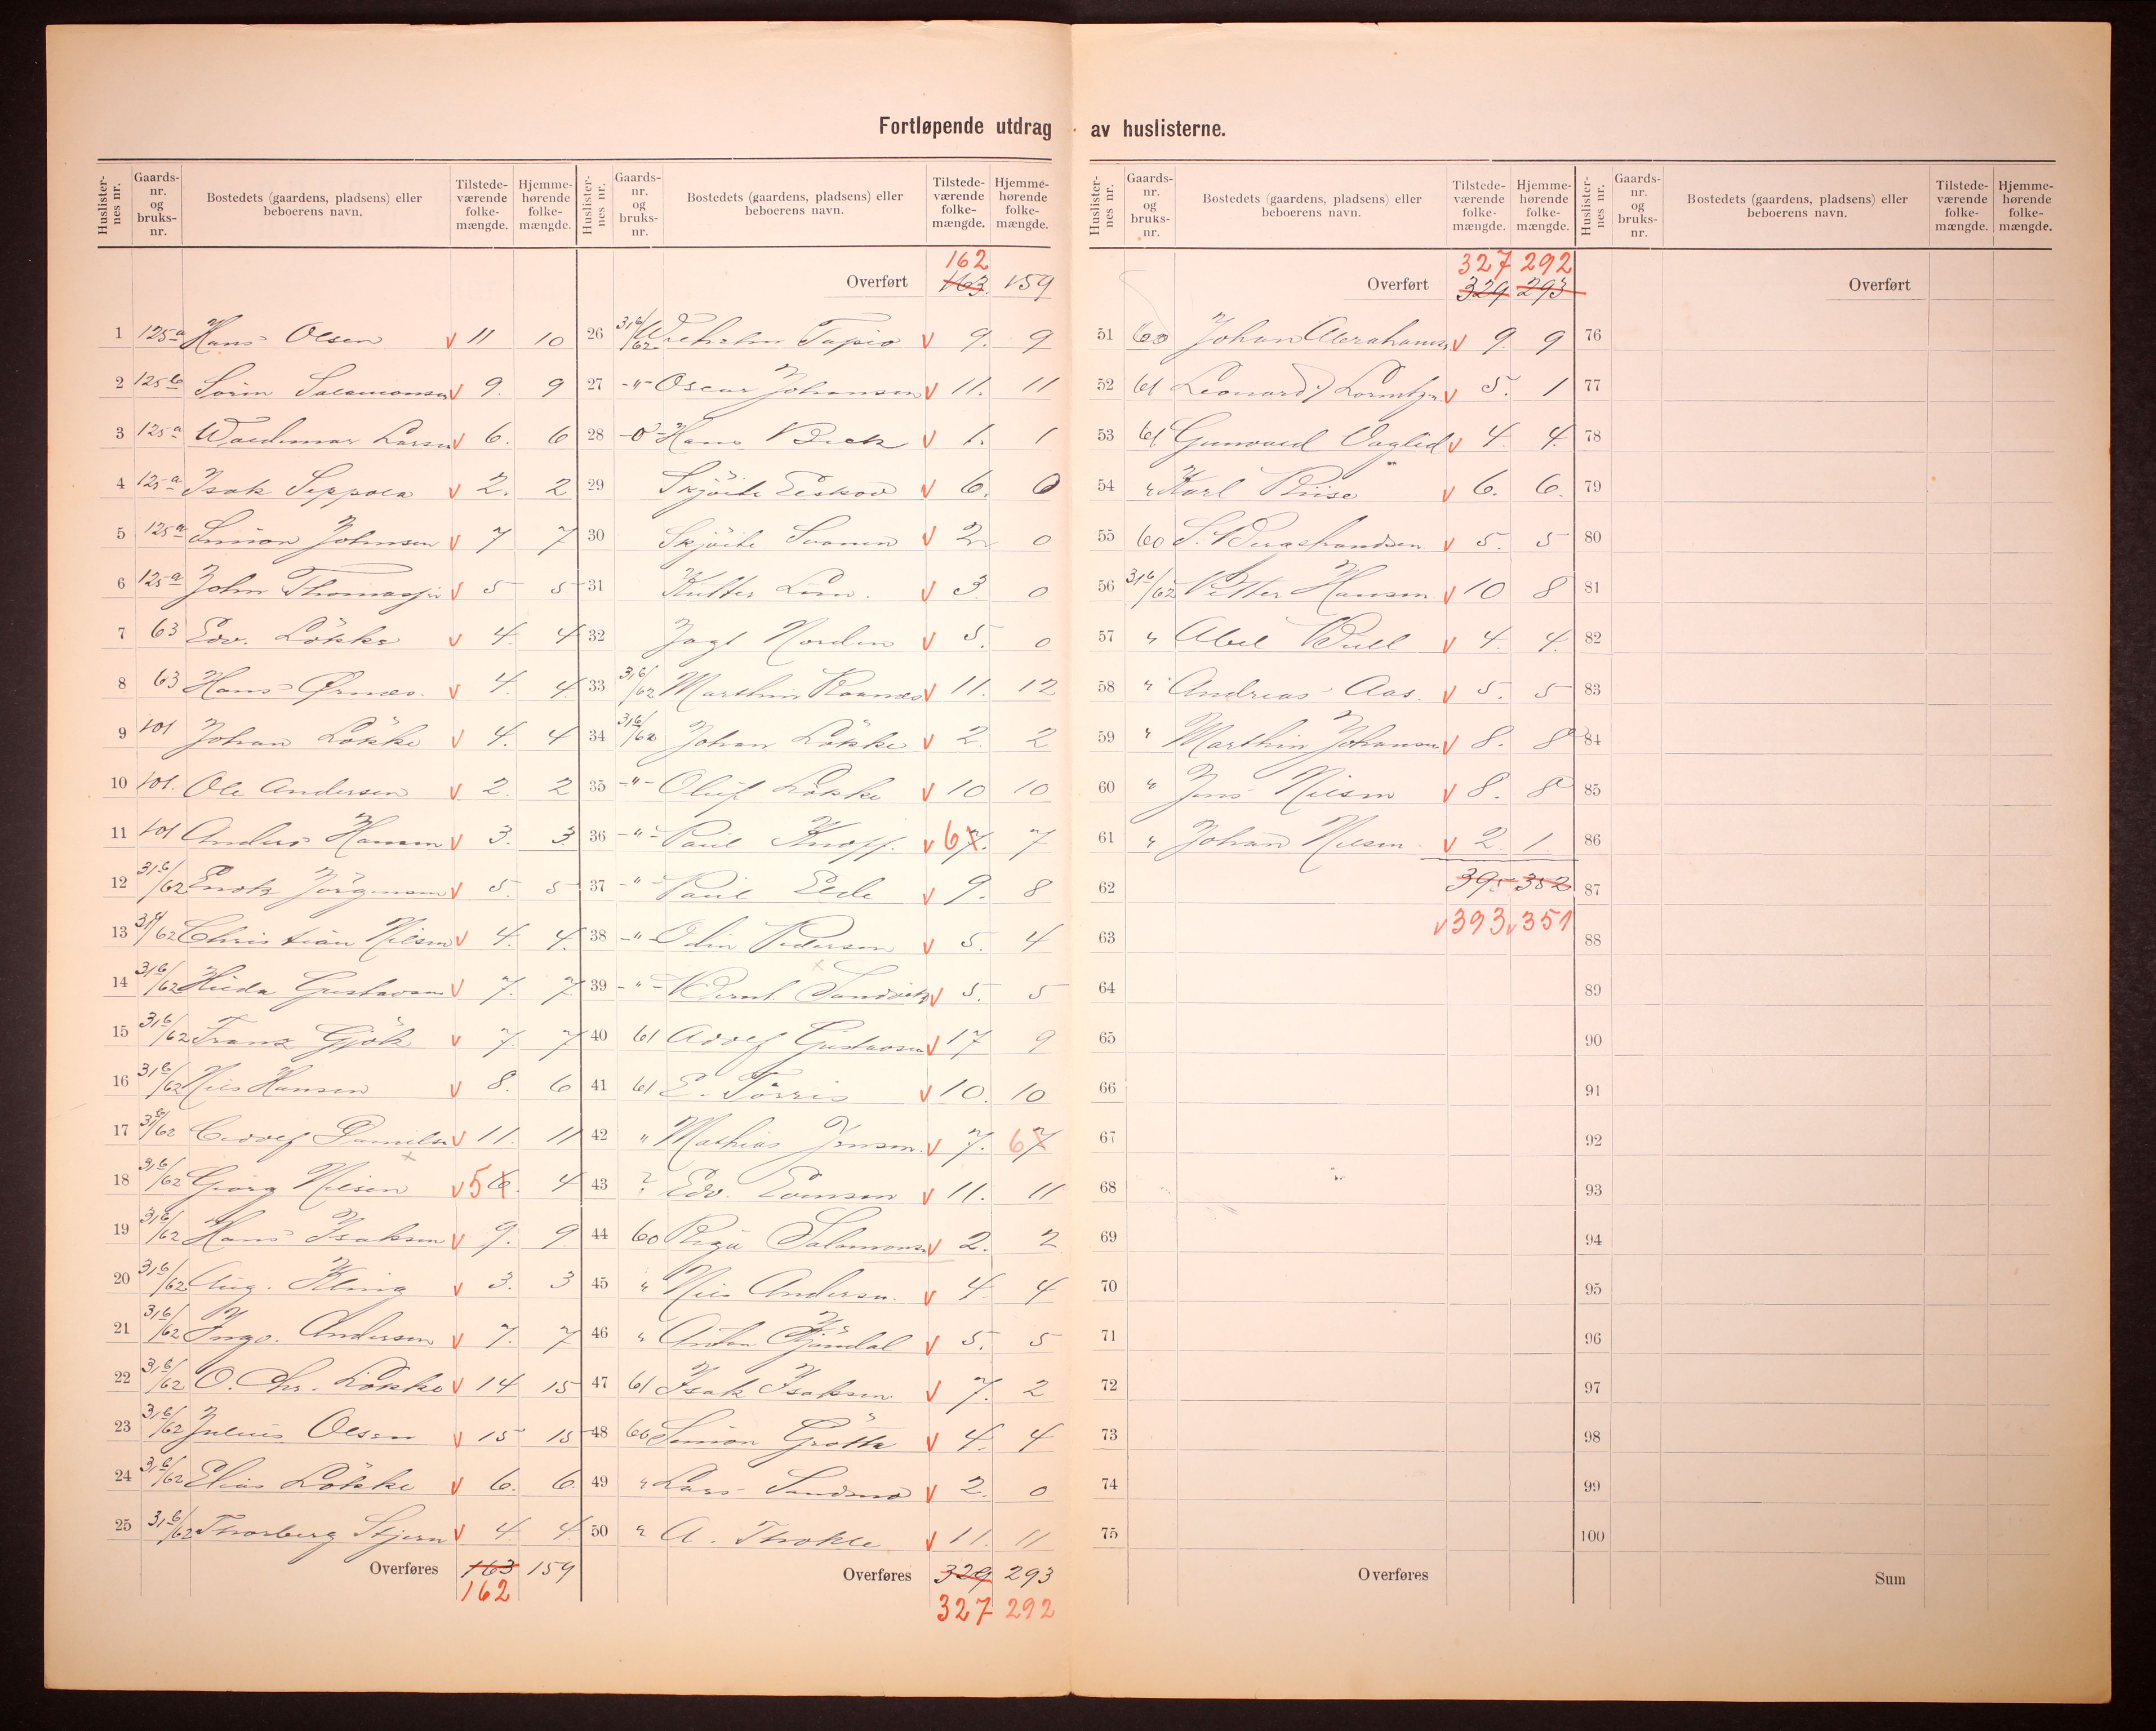 Fortløpende utdrag av huslisterne.
Huslisternes nr. Gaards-nr. og bruks-nr. Bostedets (gaardens, pladsens) eller beboerens navn. Tilstedeværende folkemængde. Hjemmehørende folkemængde.
1 125a Hans Olsen v 11 10
2 125b Sørin Salamonsen v 9. 9
3 125a Waldemar Larsen v 6. 6
4 125a Isak Seppola v 2. 2
5 125a Simon Johnsen v 7 7
6 125a John v 5 5
7 63 Edv. Løkke v 4 4
8 63 Hans Ørnes. v 4. 4.
9 101 Johan Løkke v 4. 4
10 101. Ole Andersen v 2. 2
11 101 Anders Hansen v 3. 3
12 31,6/62 Enok Jørgensen v 5. 5
13 31,6/62 Christian Nilsen v 4. 4.
14 31,6/62 Hilda Gustavsen v 7. 7
15 31,6/62 Franz Gjøk v 7. 7
16 31,6/62 Nils Hansen v 8. 6
17 31,6/62 Adolf Danielsen v 11. 11
18 31,6/62 Georg Nilsen v 5 6. 4
19 31,6/62 Hans Isaksen v 9. 9
20 31,6/62 Aug. Kling v 3. 3
21 31,6/62 Inga. Andersen v 7. 7
22 31,6/62 O. Chr. Løkke v 14 15
23 31,6/62 Julius Olsen v 15 15
24 31,6/62 Elias Løkke v 6. 6.
25 31,6/62 Thorberg Stjern v 4. 4.
Overføres 163 159
162
Huslisternes nr. Gaards-nr. og bruks-nr. Bostedets (gaardens, pladsens) eller beboerens navn. Tilstedeværende folkemængde. Hjemmehørende folkemængde.
162
Overført 163. 159
26 31,6/62 Wilhelm Tapio v 9. 9
27 -"- Oscar Johansen v 11. 11
28 Hans Bick v 1. 1
29 Skjøite v 6. 0
30 Skjøite Svanen v 2 0
31 Kutter v 3. 0
32 Jagt Norden v 5. 0
33 31,6/62 Marthin v 11. 12
34 31,6/62 Johan Løkke v 2. 2
35 -"- Oluf Løkke v 10 10
36 -"- Paul Knoff. v 6 7. 7
37 -"- Paul Eide v 9. 8
38 -"- Odin Pedersen v 5. 4
39 -"- Bernt. Sandvik v 5. 5
40 61 Adolf Gustavsen v 17 9
41 61 E. Tørris v 10. 10
42 " Mathias Jensen. v 7. 6 7
43 ? Edv. v 11. 11
44 60 Salamonsen v 2. 2
45 " Nils Andersen. v 4. 4
46 " Anton v 5. 5
47 61 Isak Isaksen v 7. 2
48 60 Simon Grøtte v 4. 4
49 " Lars Sandmo v 2. 0
50 " A. v 11. 11
Overføres 329 293
327 292
Huslisternes nr. Gaards-nr. og bruks-nr. Bostedets (gaardens, pladsens) eller beboerens navn. Tilstedeværende folkemængde. Hjemmehørende folkemængde.
327 292
Overført 329 293
51 60 Johan Abrahamsen v 9. 9
52 61 Leonard Lorentzen v 5. 1
53 61 Gunvald v 4. 4.
54 " Karl v 6. 6.
55 60 S. v 5. 5
56 31,6/62 Petter Hansen v 10 8
57 " Abel Bull v 4. 4.
58 " Andreas Aas. v 5. 5
59 " Marthin Johansen v 8. 8
60 " Jens Nilsen v 8. 8
61 " Johan Nilsen. v 2. 1
62 395 352
v 393 v 351
63
64
65
66
67
68
69
70
71
72
73
74
75
Overføres
Huslisternes nr. Gaards-nr. og bruks-nr. Bostedets (gaardens, pladsens) eller beboerens navn. Tilstedeværende folkemængde. Hjemmehørende folkemængde.
Overført
76
77
78
79
80
81
82
83
84
85
86
87
88
89
90
91
92
93
94
95
96
97
98
99
100
Sum